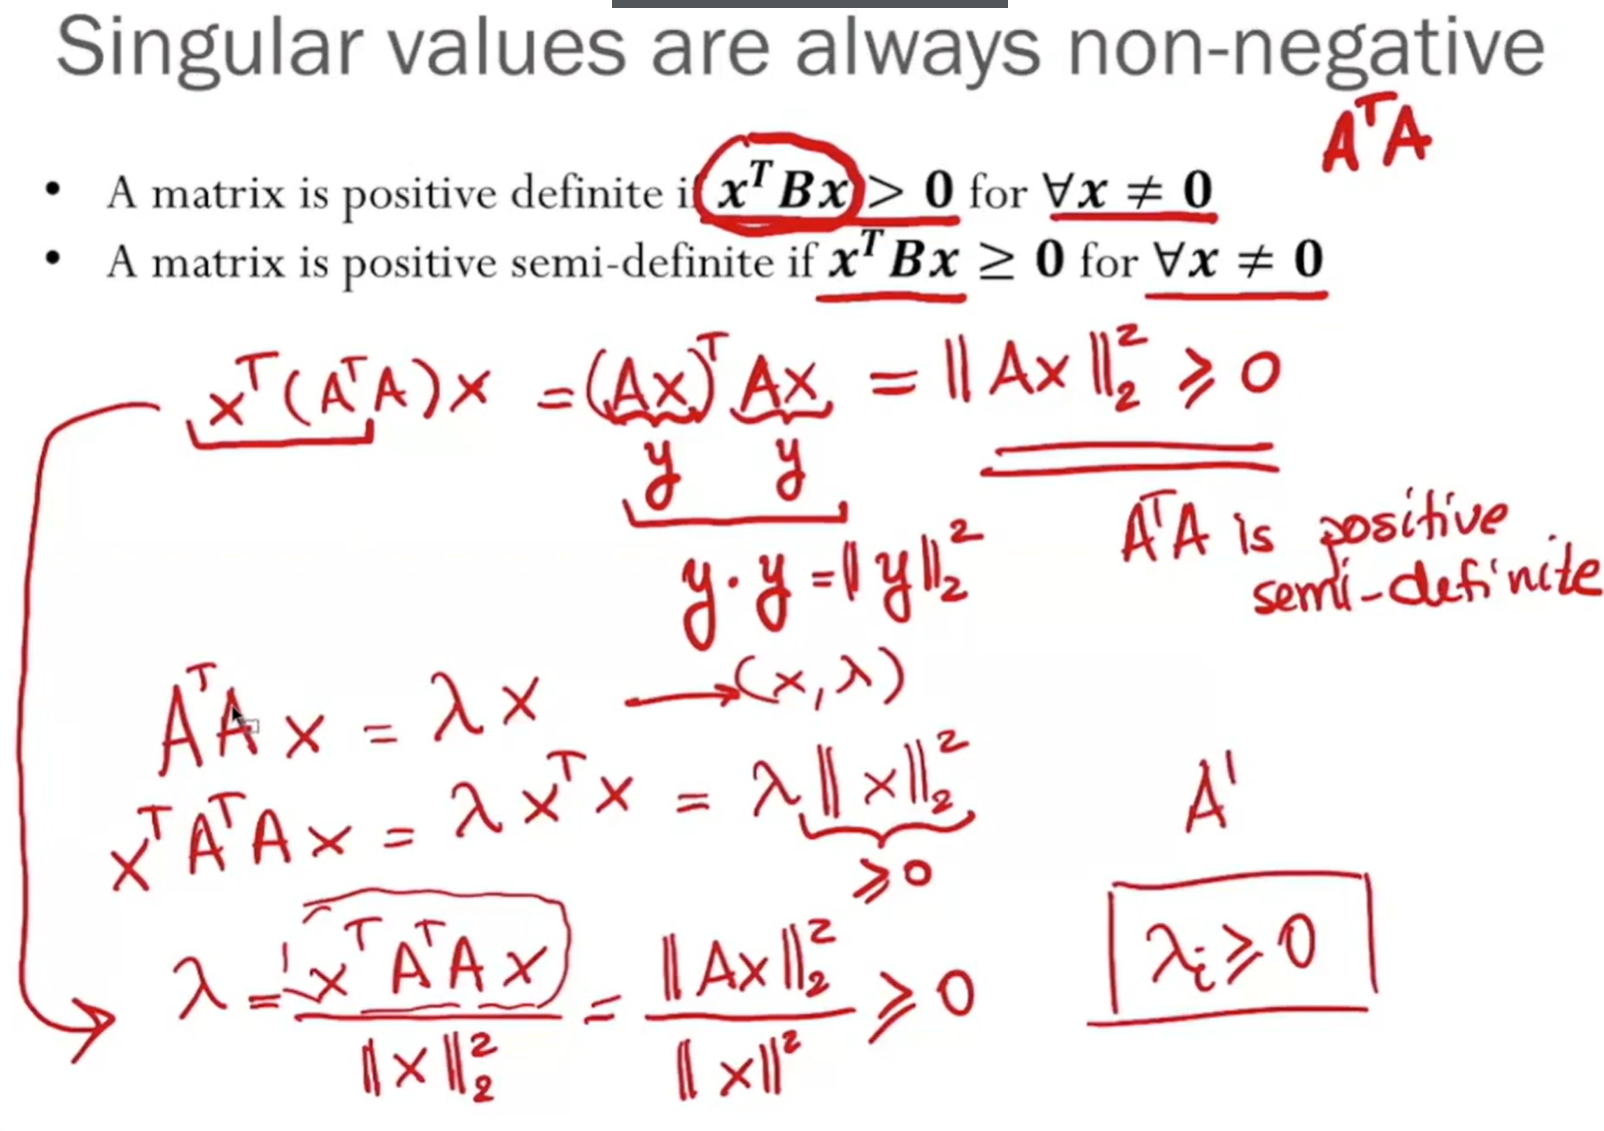 Singular values are always non-negative
AᵀA
• A matrix is positive definite i xᵀBx > 0 for ∀x ≠ 0
• A matrix is positive semi-definite if xᵀBx ≥ 0 for ∀x ≠ 0
xᵀ(AᵀA)x = (Ax)ᵀ Ax = ||Ax||₂² ≥ 0
y y
y·y = ||y||₂²
AᵀA is positive
semi-definite
AᵀA x = λx → (x, λ)
xᵀAᵀA x = λ xᵀx = λ||x||₂²
≥0
A'
λ = xᵀAᵀA x / ||x||₂² = ||Ax||₂² / ||x||² ≥ 0
λᵢ ≥ 0